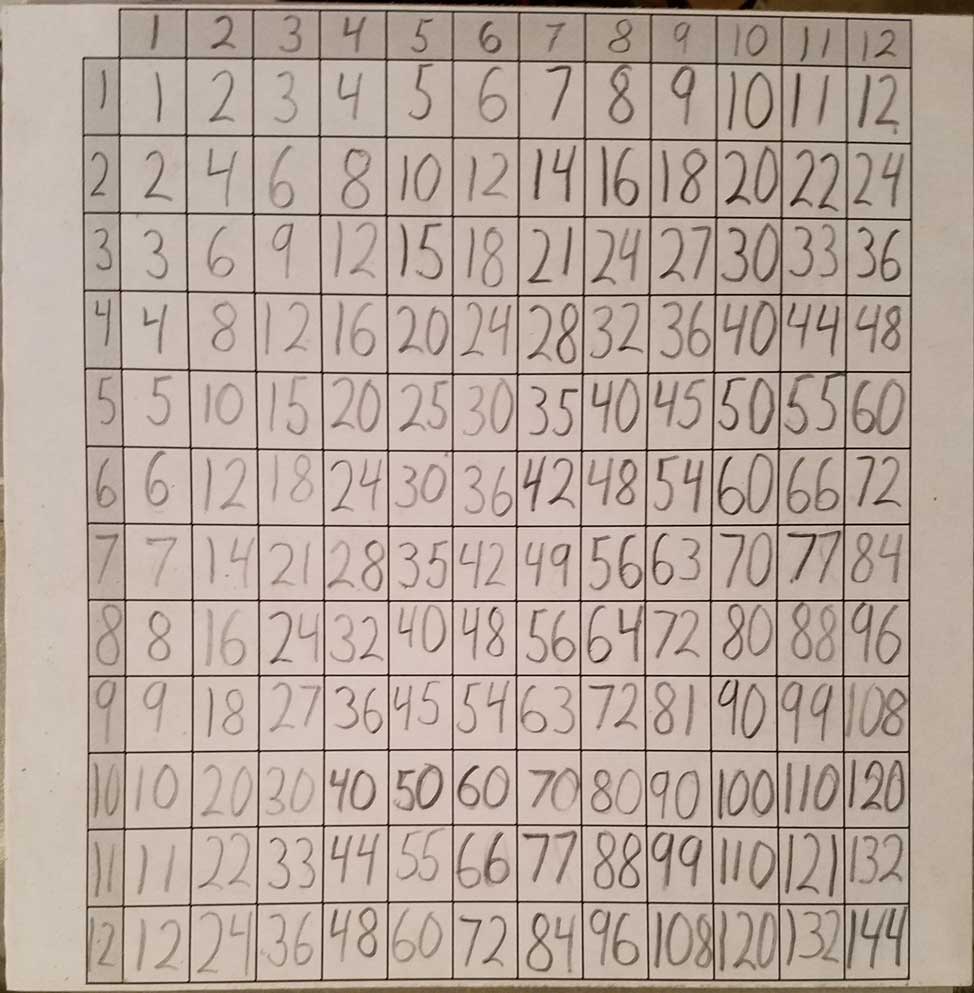 1 2 3 4 5 6 7 8 9 10 11 12
1 1 2 3 4 5 6 7 8 9 10 11 12
2 2 4 6 8 10 12 14 16 18 20 22 24
3 3 6 9 12 15 18 21 24 27 30 33 36
4 4 8 12 16 20 24 28 32 36 40 44 48
5 5 10 15 20 25 30 35 40 45 50 55 60
6 6 12 18 24 30 36 42 48 54 60 66 72
7 7 14 21 28 35 42 49 56 63 70 77 84
8 8 16 24 32 40 48 56 64 72 80 88 96
9 9 18 27 36 45 54 63 72 81 90 99 108
10 10 20 30 40 50 60 70 80 90 100 110 120
11 11 22 33 44 55 66 77 88 99 110 121 132
12 12 24 36 48 60 72 84 96 108 120 132 144